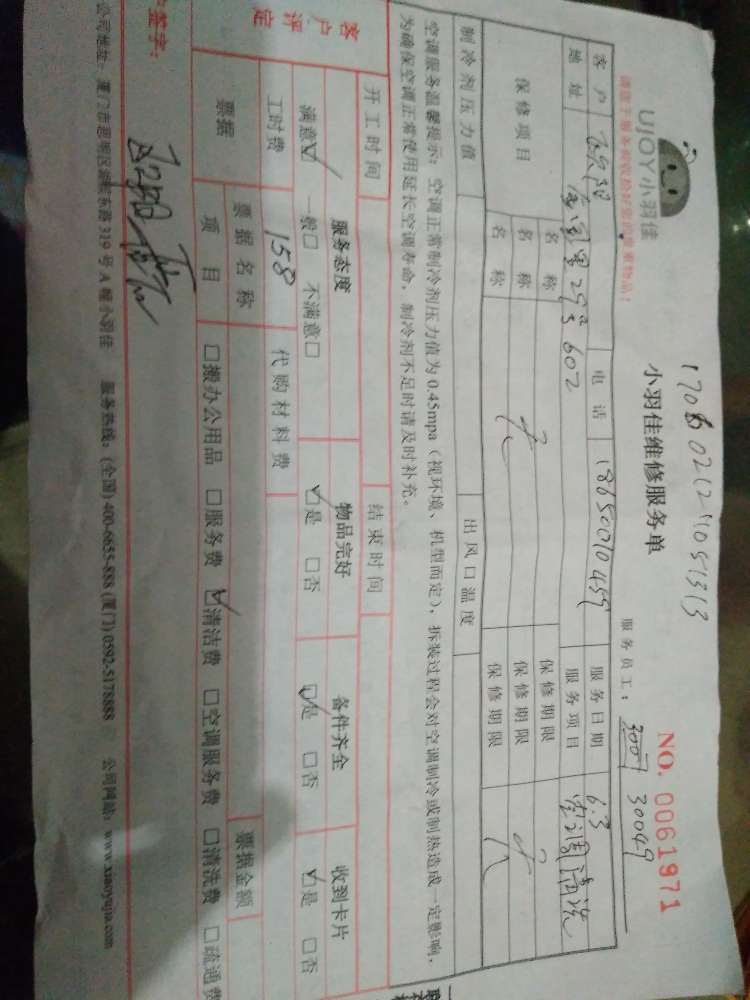 UJOY小羽佳
小羽佳维修服务单
NO. 0061971
服务员工： 30049
客户 电话 服务日期 6.3
地址 29 602 服务项目 空调清洗
保修项目 名称 保修期限
名称 无 保修期限 无
名称 保修期限
制冷剂压力值 出风口温度
空调服务温馨提示：空调正常制冷剂压力值为0.45mpa（视环境、机型而定），拆装过程会对空调制冷或制热造成一定影响，
为确保空调正常使用延长空调寿命，制冷剂不足时请及时补充。
开工时间 结束时间
客户评定 服务态度 物品完好 备件齐全 收到卡片
满意☑ 一般□ 不满意□ ☑是 □否 ☑是 □否 ☑是 □否
工时费 158 代购材料费
票据 票据名称 票据金额
项目 □搬办公用品 □服务费 ☑清洁费 □空调服务费 □清洗费 □疏通费
签字：
公司地址：厦门市思明区 东路319号A幢小羽佳 服务热线：(全国) 400-6655-888 (厦门) 0592-5178888 公司网站：www.xiaoyujia.com